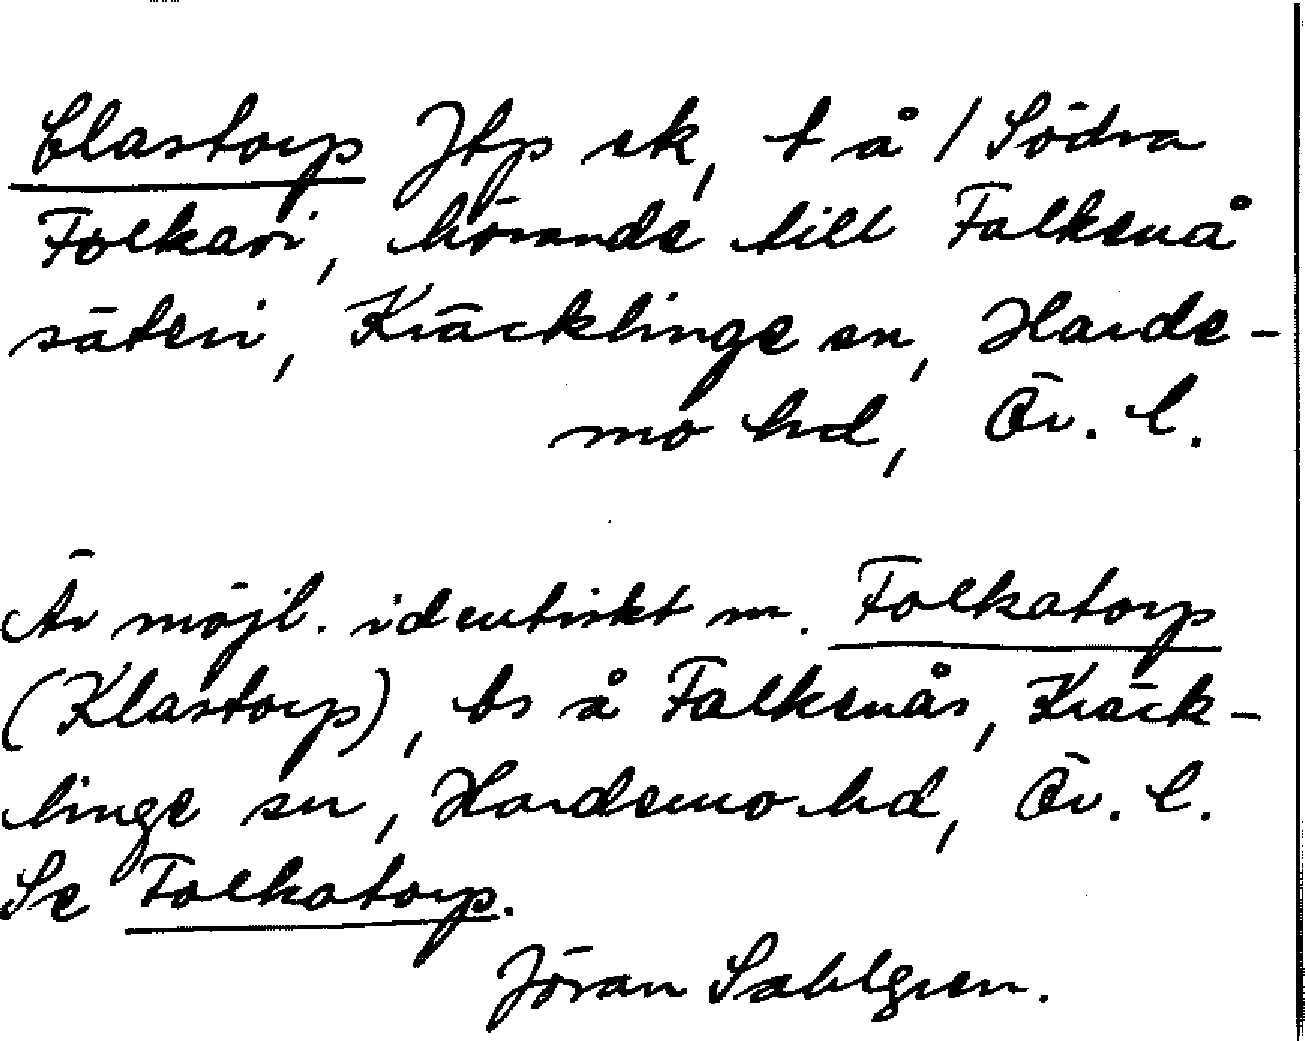 Clastorp Jtp sk, t å / Södra
Folkavi, hörande till Falkenå
säteri, Kräcklinge sn, Harde-
mo hd, Ör. l.
Är möjl. identiskt m. Folkatorp
(Klastorp), bs å Falkenås, Kräck-
linge sn, Hardemo hd, Ör. l.
Se Folkatorp.
Jöran Sahlgren.